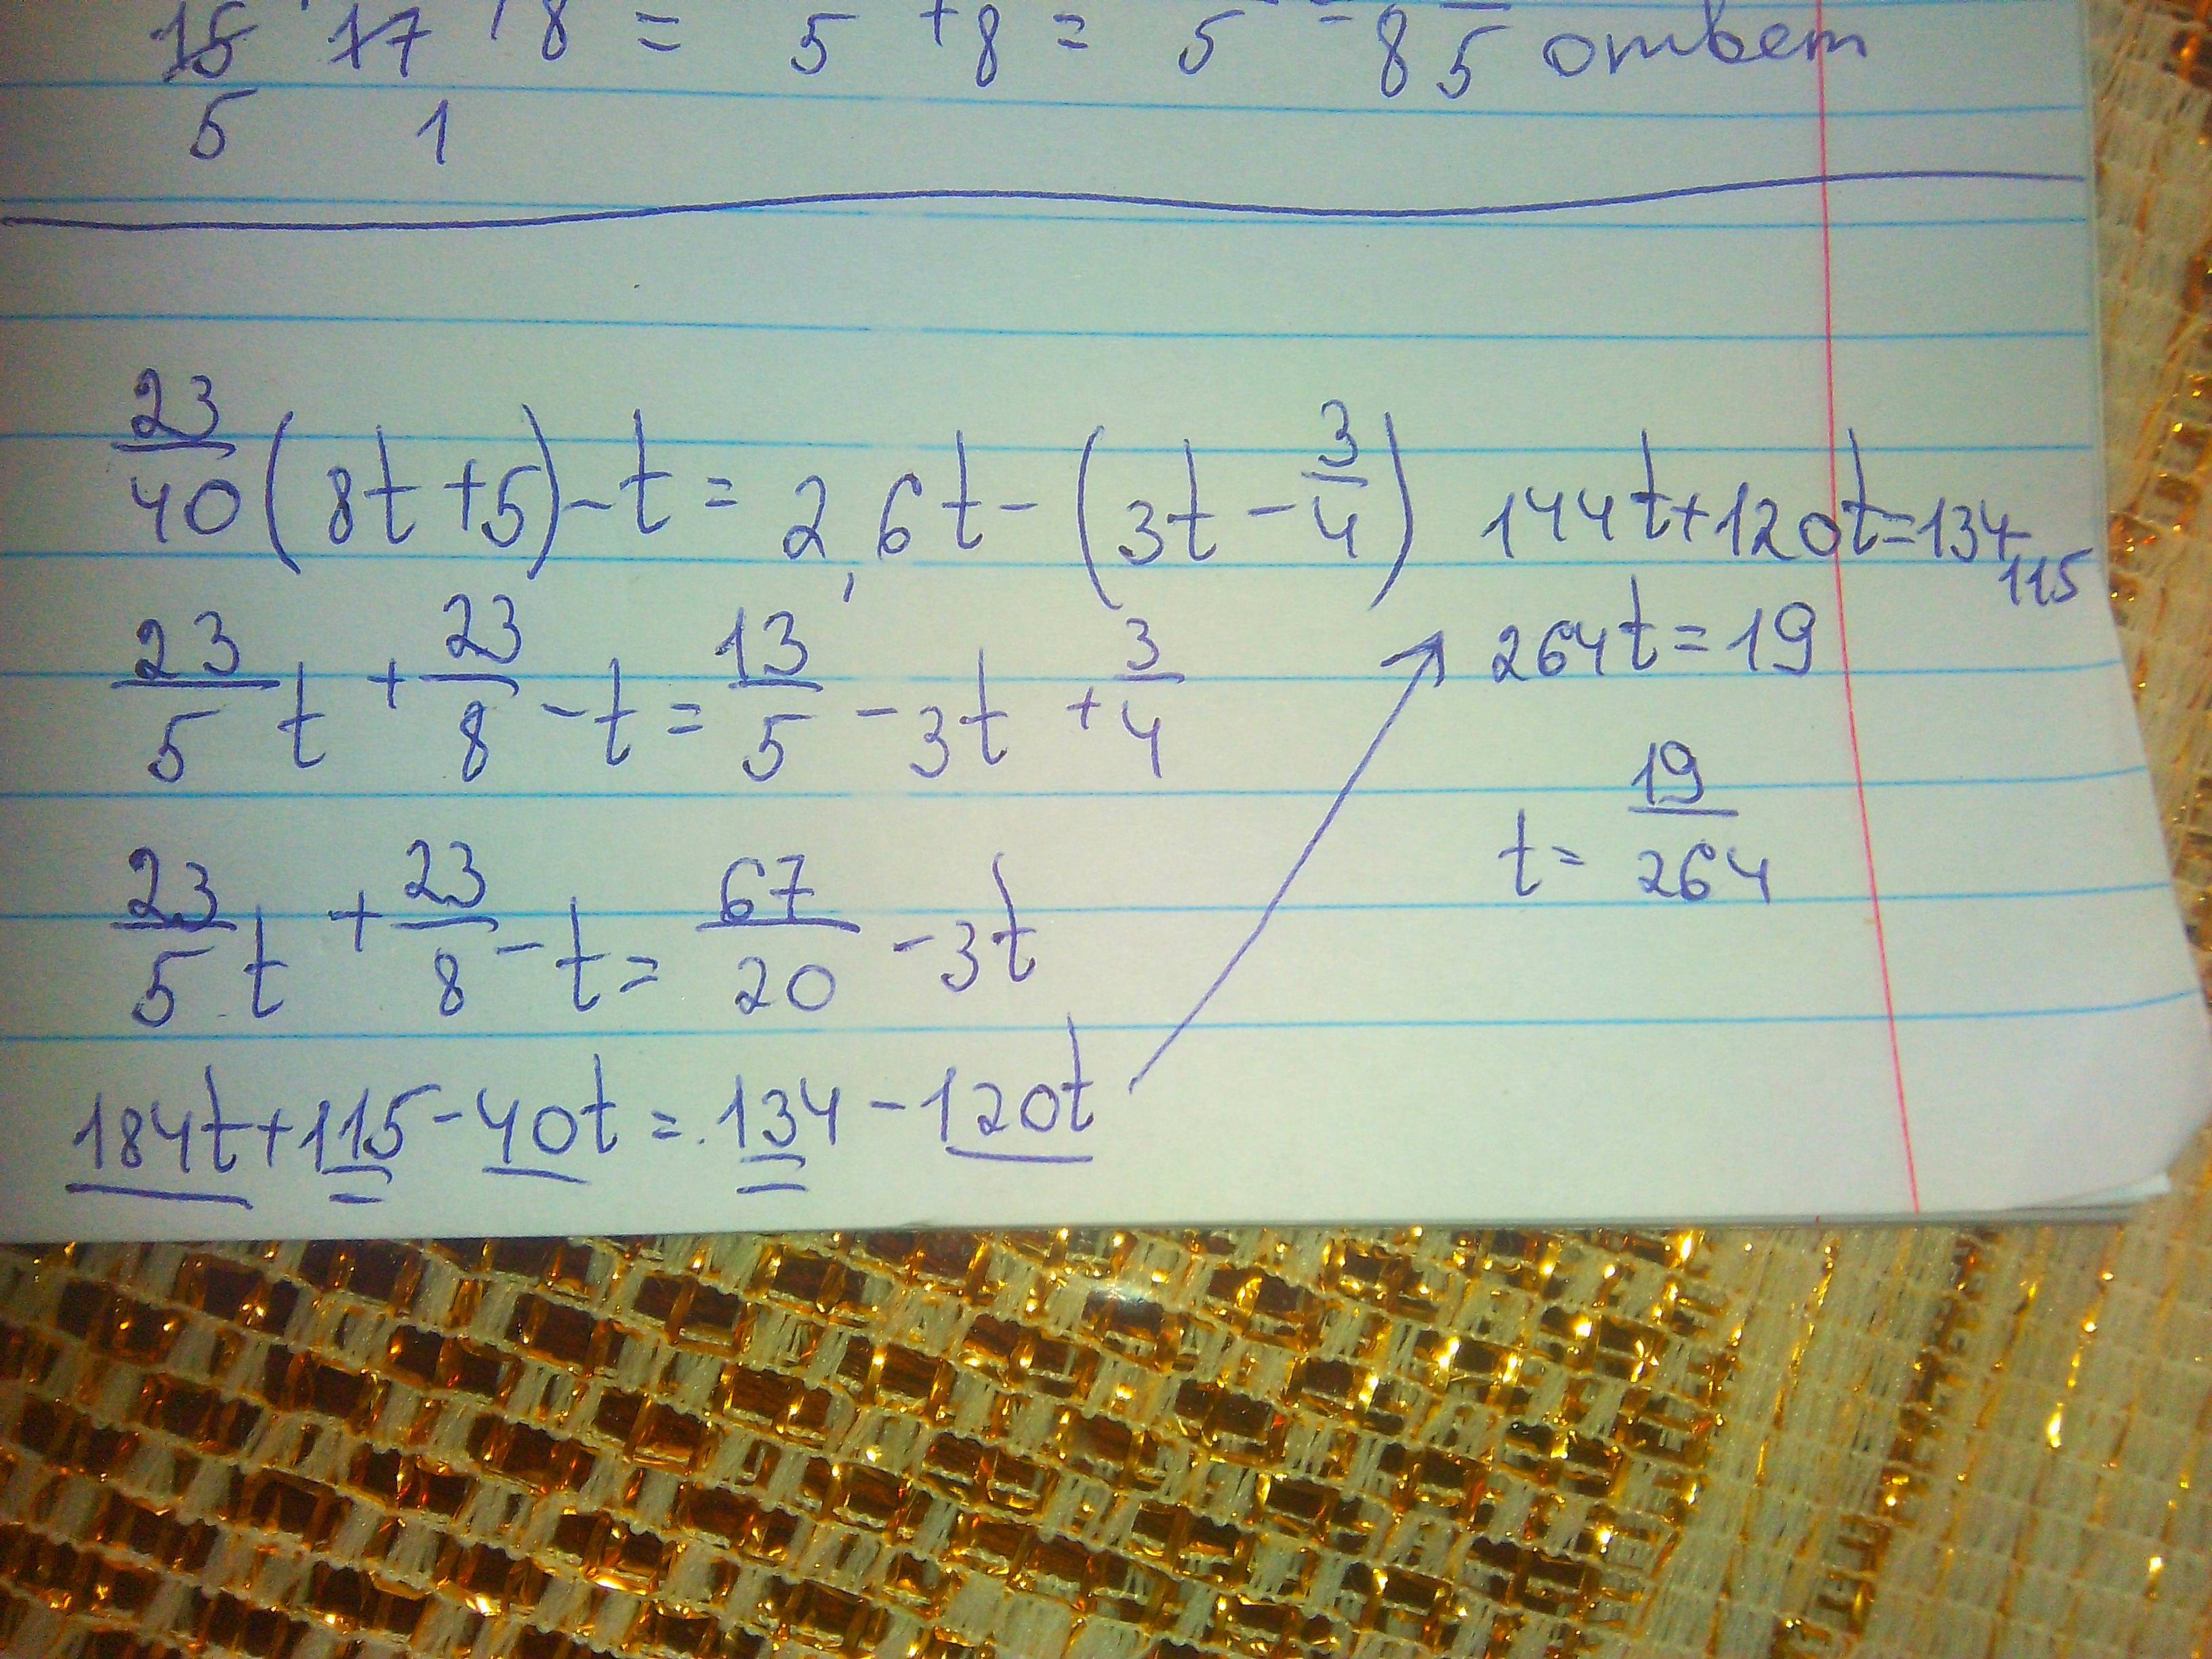 15 17 + 8 = 5 + 8 = 5 = 8 5 ответ
5 1
23/40 (8t + 5) - t = 2,6t - (3t - 3/4)
23/5 t + 23/8 - t = 13/5 - 3t + 3/4
23/5 t + 23/8 - t = 67/20 - 3t
184t + 115 - 40t = 134 - 120t
144t + 120t = 134 - 115
264t = 19
t = 19/264